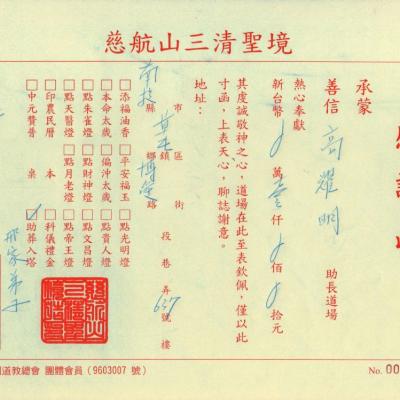 慈航山三清聖境
感謝狀
承蒙
善信 高耀明 助長道場
熱心奉獻
新台幣 萬 壹 仟 佰 拾元
其度誠敬神之心，道場在此至表欽佩，僅以此
寸函，上表天心，聊誌謝意。
地址：
南投 縣 市 草屯 鄉 鎮 區 博愛 路 街 段 巷 弄 637 號 樓
□添福油香 □平安福玉 □點光明燈
□本命太歲 □偏沖太歲 □點貴人燈
□點朱雀燈 □點財神燈 □點文昌燈
□點天醫燈 □點月老燈 □點帝王燈
□印農民曆 本 □科儀禮金
□中元贊普 桌 助葬入塔
邢家弟子
道教總會 團體會員（9603007 號）
No. 00